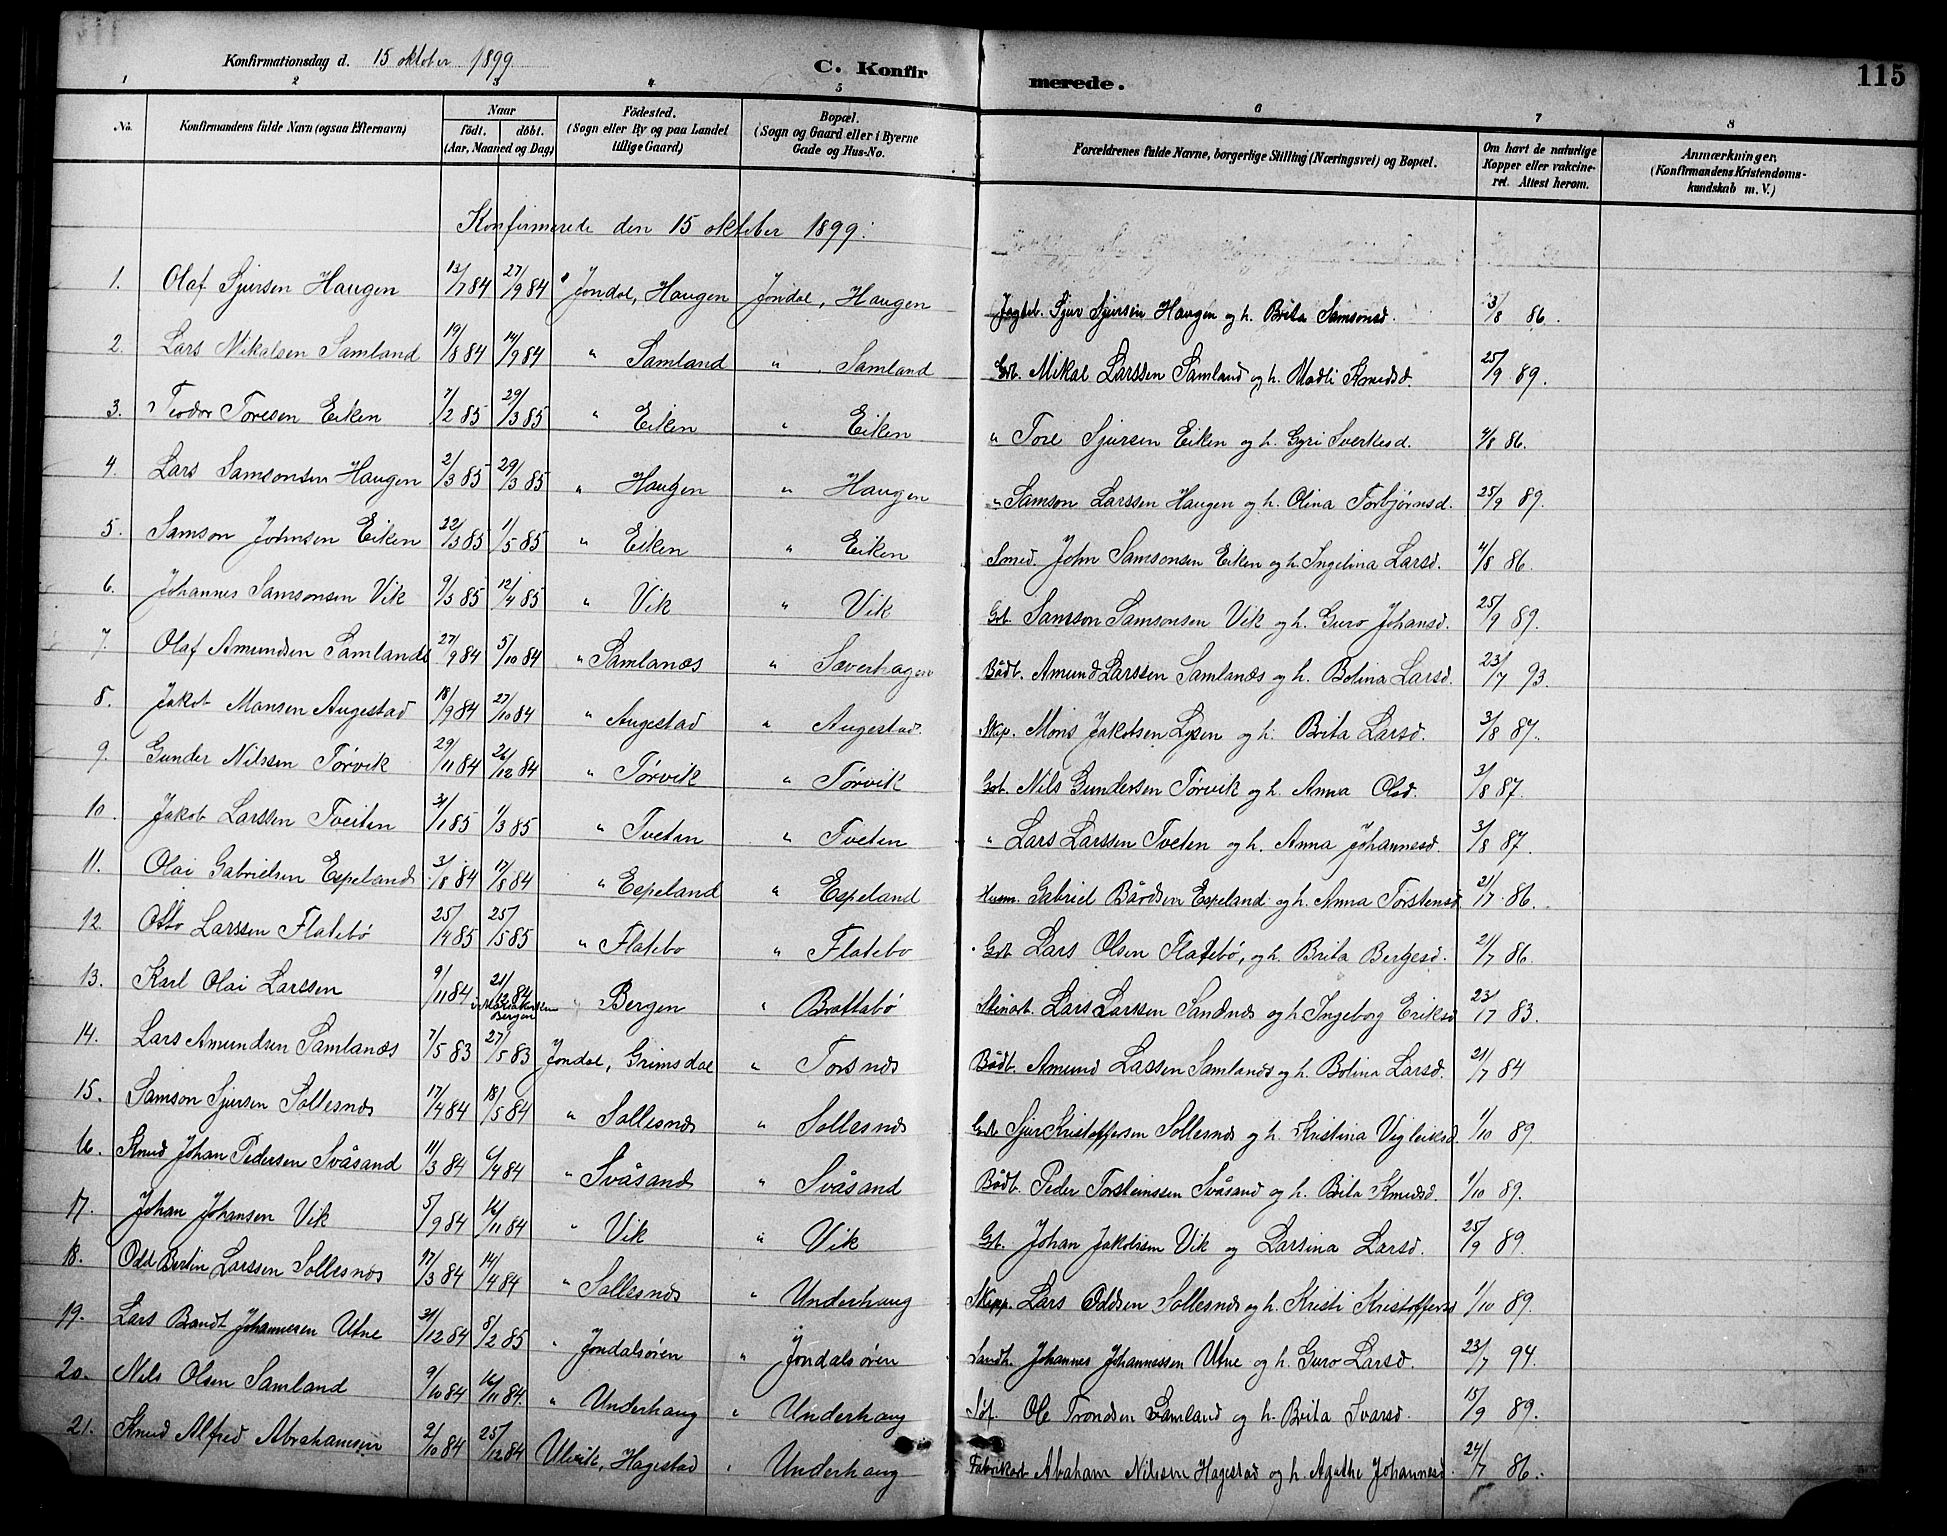 Konfirmationsdag d. 15 oktober 1899
C. Konfir
merede.
115
1 2 3 4 5 6 7 8
No. Konfirmandens fulde Navn (ogsaa Efternavn) Naar født. døbt. (Aar, Maaned og Dag) Födested. (Sogn eller By og paa Landet tillige Gaard) Bopæl. (Sogn og Gaard eller i Byerne Gade og Hus-No. Forældrenes fulde Navne, borgerlige Stilling (Næringsvei) og Bopæl. Om havt de naturlige Kopper eller vakcineret. Attest herom. Anmærkninger, (Konfirmandens Kristendomskundskab m. V.)
Konfirmerede den 15 oktober 1899:
1. Olaf Sjursen Haugen 13/7 84 27/9 84 Jondal, Haugen Jondal, Haugen Jagtet. Sjur Sjursen Haugen og h. Brita Samsonsd. 3/8 86.
2. Lars Nikolsen Samland 19/8 84 14/9 84 " Samland " Samland Grb. Mikal Larssen Samland og h. Madli Knudsd. 25/9 89.
3. Teodor Toresen Eiken 7/2 85 29/3 85 " Eiken " Eiken " Tore Sjursen Eiken og h. Gyri Sverkesd. 4/8 86.
4. Lars Samsonsen Haugen 2/3 85 29/3 85 " Haugen " Haugen " Samson Larssen Haugen og h. Olina Torbjørnsd. 25/9 89.
5. Samson Johnsen Eiken 22/3 85 1/5 85 " Eiken " Eiken Smed. John Samsonsen Eiken og h. Ingelina Larsd. 4/8 86.
6. Johannes Samsonsen Vik 9/3 85 12/4 85 " Vik " Vik Grb. Samson Samsonsen Vik og h. Guro Johansd. 25/9 89.
7. Olaf Amundsen Samlandes 27/9 84 5/10 84 " Samlanæs " Saverhagen Bådb. Amund Larssen Samlanæs og h. Bolina Larsd. 23/7 93.
8. Jakob Monsen Augestad 18/9 84 27/10 84 " Augestad " Augestad. Skip. Mons Jakobsen Lysen og h. Brita Larsd. 3/8 87.
9. Gunder Nilssen Tørvik 29/11 84 26/12 84 " Tørvik " Tørvik Grb. Nils Gundersen Tørvik og h. Anna Olsd. 3/8 87.
10. Jakob Larssen Tveiten 31/1 85 1/3 85 " Tveten " Tveten " Lars Larssen Tveten og h. Anna Johannesd. 3/8 87.
11. Olai Gabrielsen Espeland 3/8 84 17/8 84 " Espeland " Espeland Husm. Gabriel Bårdsen Espeland og h. Anna Torstensd. 21/7 86.
12. Otto Larssen Flatebø 25/4 85 25/5 85 " Flatebo " Flatebo Grb. Lars Olsen Flatebø, og h. Brita Bergesd. 21/7 86
13. Karl Olai Larssen 9/11 84 21/12 84 i Mariakirken Bergen " Bergen " Brattabø Stenarb. Lars Larssen Sandnes og h. Ingeborg Eriksd 23/7 83.
14. Lars Amundsen Samlanæs 7/5 83 27/5 83 Jondal, Grimsdal " Torsnæs Bådb. Amund Lassen Samlandæs og h. Bolina Larsd. 21/7 84
15. Samson Sjursen Sollesnæs 17/4 84 18/5 84 " Sollesnæs " Sollesnæs Grb. Sjur Kristoffersen Sollesnæs og h. Kristina Vigleiksd. 1/10 89.
16. Knud Johan Pedersen Svåsand 11/3 84 6/4 84 " Svåsand " Svåsand Bådb. Peder Torsteinssen Svåsand og h. Brita Knudsd. 1/10 89.
17. Johan Johansen Vik 5/9 84 16/11 84 " Vik " Vik Grb. Johan Jakobsen Vik og Larsina Larsd. 25/9 89.
18. Odd Bertin Larssen Sollesnæs 17/3 84 14/4 84 " Sollesnæs " Underhaug Skipp. Lars Oddsen Sollesnæs og h. Kristi Kristoffersd 1/10 89.
19. Lars Brandt Johannesen Utne 31/12 84 8/2 85 " Jondalsøren " Jondalsøren Landh. Johannes Johannessen Utne og h. Guro Larsd. 23/7 94.
20. Nils Olsen Samland 9/10 84 16/11 84. " Underhaug " Underhaug Søf. Ole Trondsen Samland og h. Brita Ivarsd. 15/9 89.
21. Knud Alfred Abrahamsen 2/10 84 25/12 84 Ulvik, Hagestad " Underhaug Fabrikarb. Abraham Nilssen Hagestad og h. Agathe Johannesd. 24/7 86.